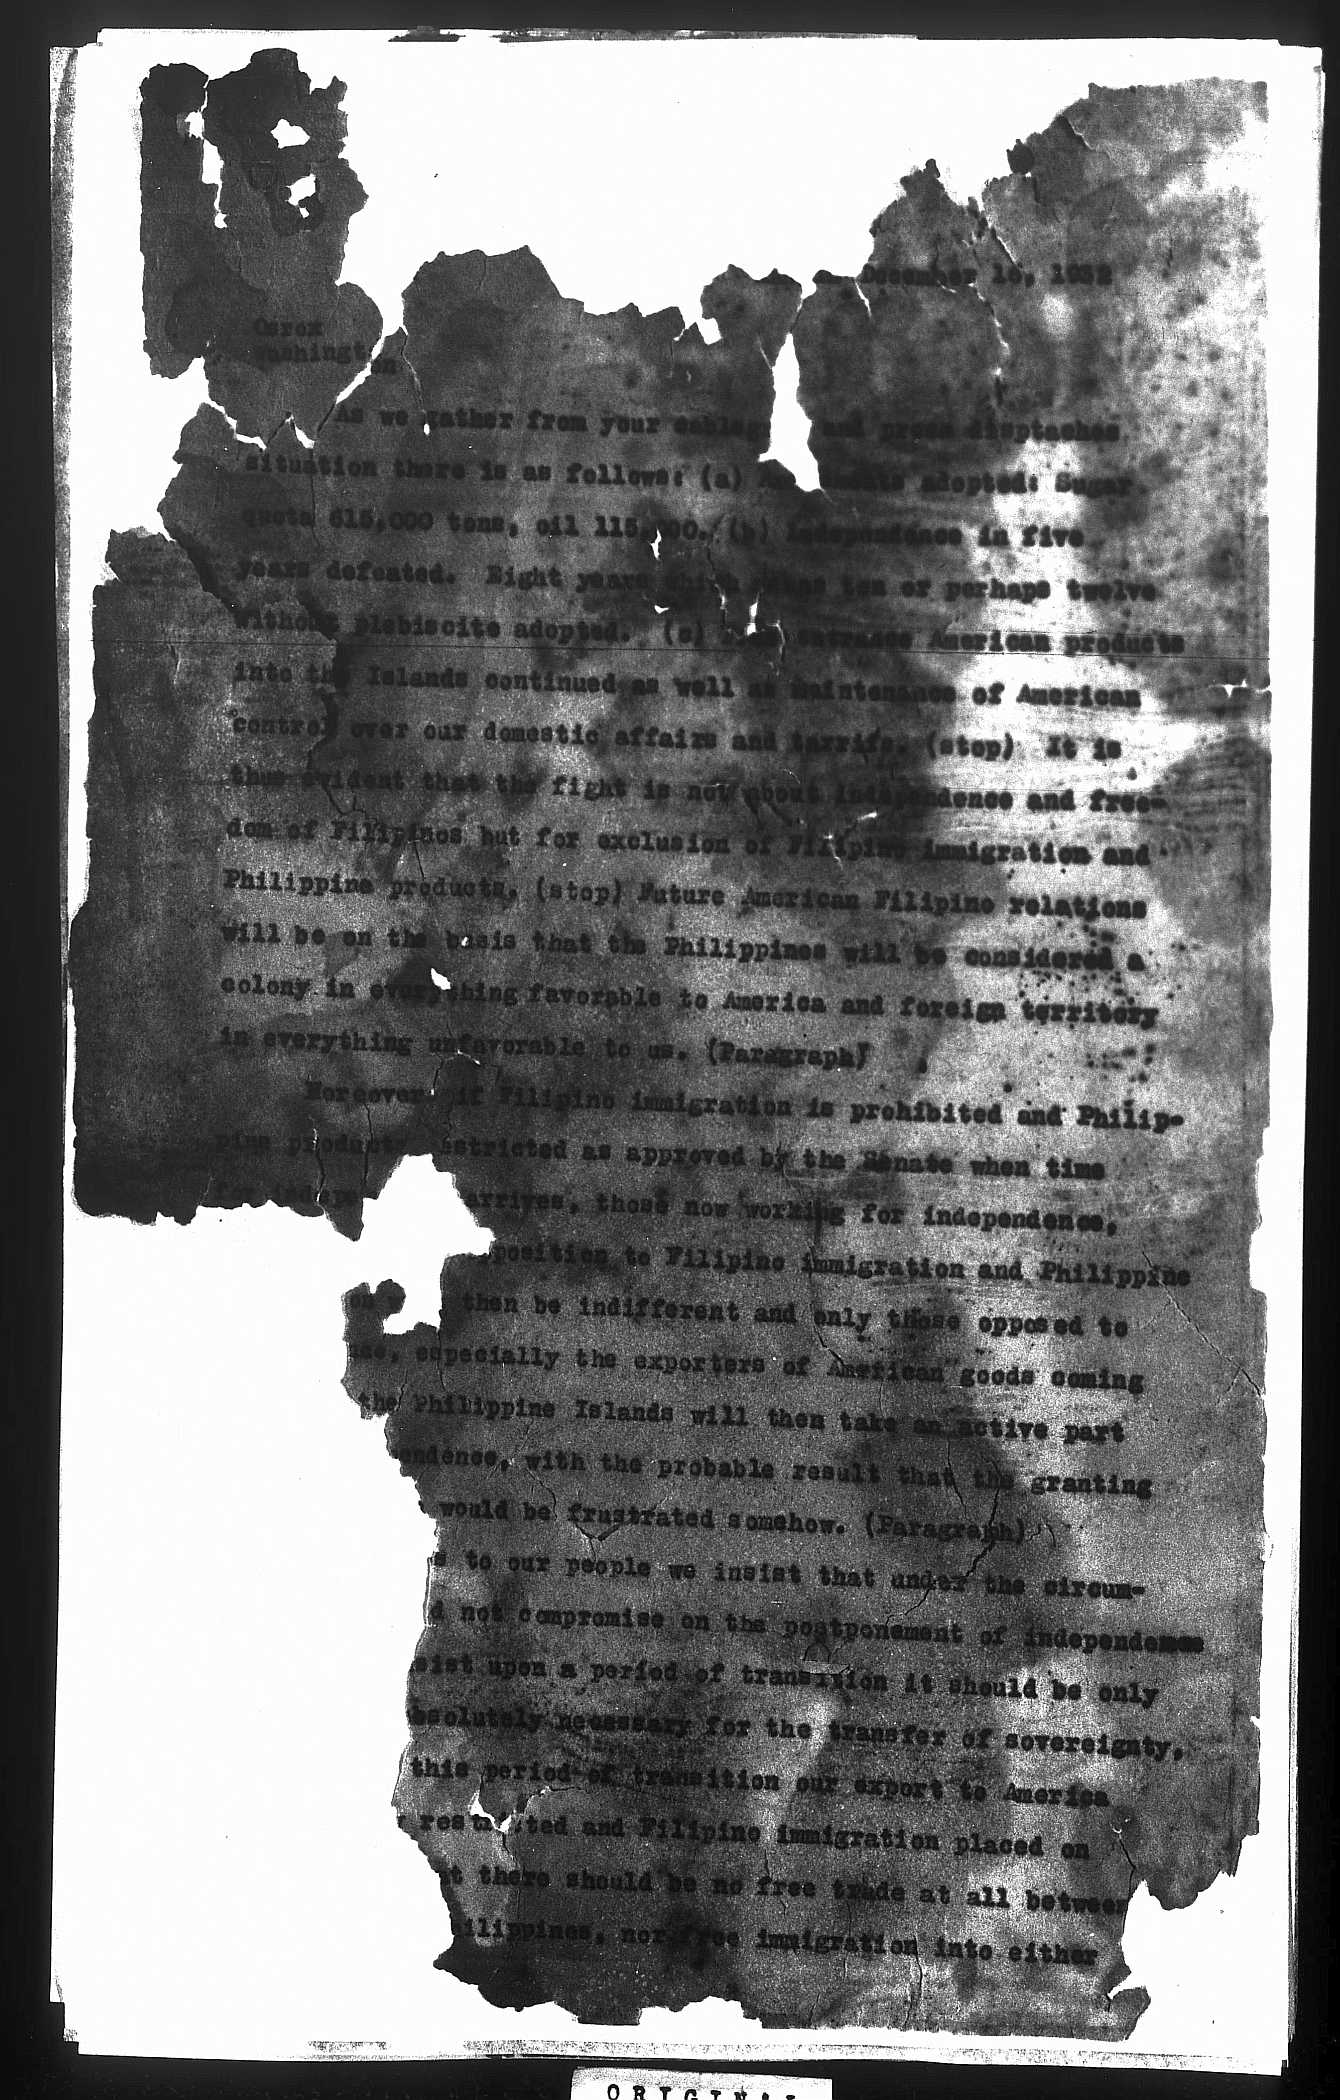 December 16, 1932
Osrox
Washington
As we gather from your and press disptaches
situation there is as follows: (a) adopted: Sugar
quota 615,000 tons, oil (b) independence in five
years defeated. Eight years which ten or perhaps twelve
without plebiscite adopted. (c) entrance American products
into the Islands continued as well as maintenance of American
control over our domestic affairs and tarrifs. (stop) It is
thus evident that the fight is not about independence and free-
dom of Filipinos but for exclusion of Filipino immigration and
Philippine products. (stop) Future American Filipino relations
will be on the basis that the Philippines will be considered a
colony in everything favorable to America and foreign territory
in everything unfavorable to us. (Paragraph)
Moreover if Filipino immigration is prohibited and Philip-
pine products estricted as approved by the Senate when time
for arrives, those now working for independence,
position to Filipino immigration and Philippine
then be indifferent and only those opposed to
nce, especially the exporters of American goods coming
the Philippine Islands will then take an active part
endence, with the probable result that the granting
would be frustrated somehow. (Paragraph)
s to our people we insist that under the circum-
d not compromise on the postponement of independence
sist upon a period of transition it should be only
bsolutely necessary for the transfer of sovereignty,
this period of transition our export to America
restricted and Filipino immigration placed on
t there should be no free trade at all between
ilippines, nor free immigration into either
ORIGINAL